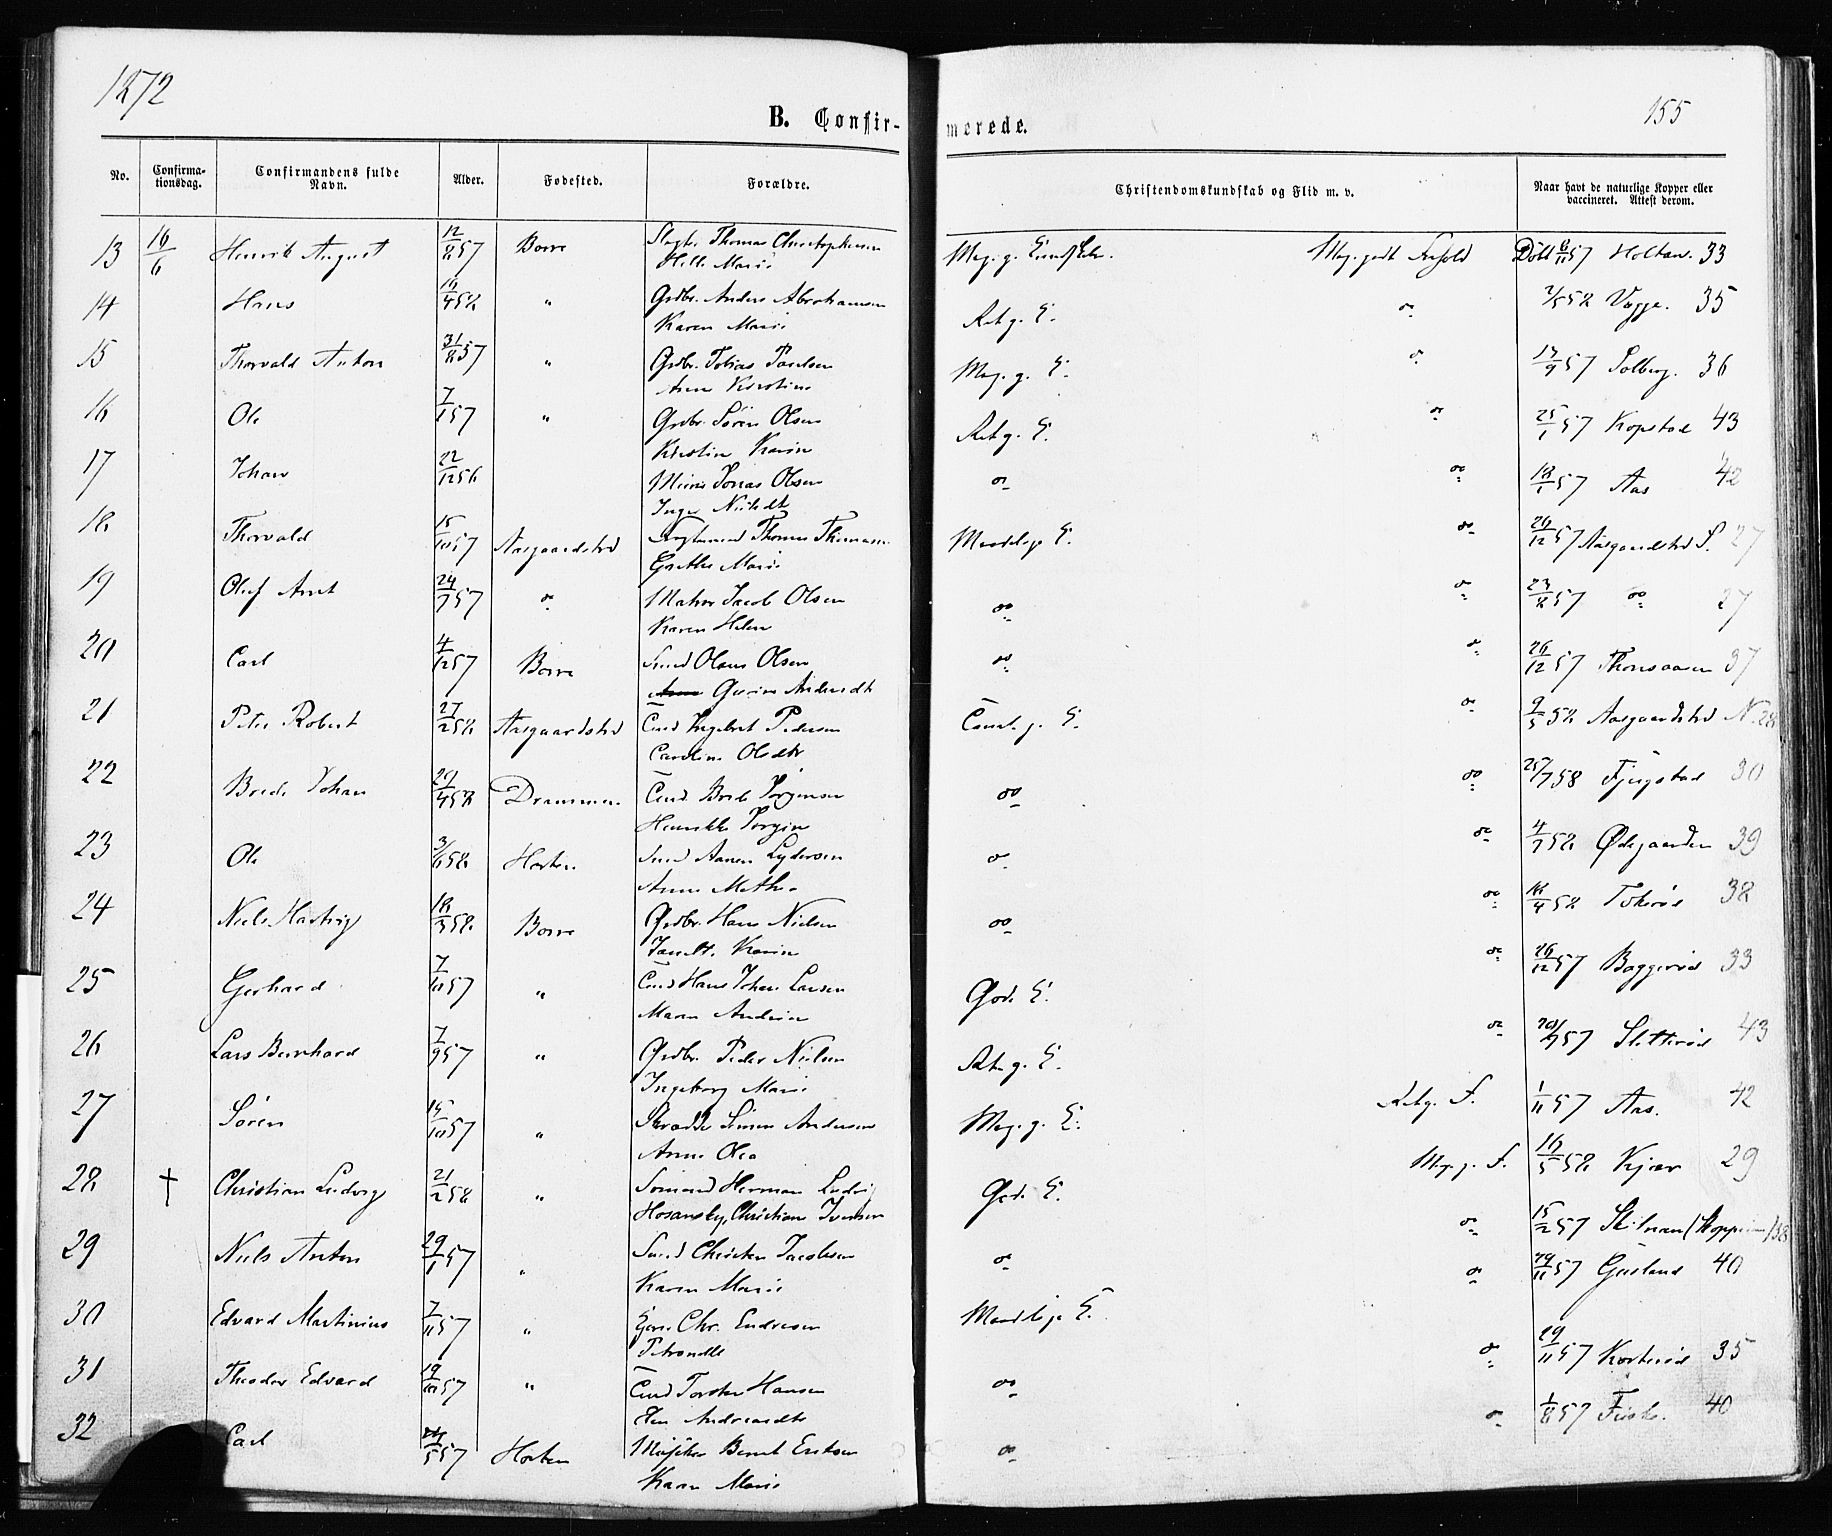 1872
155
B. Confirmerede.
No. Confirmationsdag. Confirmandens fulde Navn. Alder. Fødested. Forældre. Christendomskundskab og Flid m. v. Naar havt de naturlige Kopper eller vaccineret. Attest derom.
13 16/6 Henrik August 12/8 57 Borre Thomas Christophersen Meg. g. Meg. godt Forhold Døbt 57 Holtan. 33
Helle Marie
14 Hans 16/4 58 " Grdbr. Anders Abrahamsen Ret g. E. do 2/5 58 35
Karen Marie
15 Thorvald Anton 31/8 57 " Grdbr. Tobias Paulsen Meg. g. E. do 13/9 57 Solberg. 36
Anne Kirstine
16 Ole 7/1 57 " Grdbr. Søren Olsen Ret g. E. do 25/1 57 Kopstad 43
Kirstine Karine
17 Johan 22/12 56 Jonas Olsen do do 18/1 57 Aas 42
Inger Nilsdt
18 Thorvald 15/10 57 Aasgaardstrd Thomas Thomasen Maadelige E. do 26/12 57 Aasgaardstrd S. 27
Grethe Marie
19 Oluf Arnt 24/7 57 do Matros Jacob Olsen do do 23/8 57 do 27
Karen Helene
20 Carl 4/12 57 Borre Smed Olaus Olsen do do 26/12 57 37
Anne Gurine Andersdt
21 Peter Robert 27/2 58 Aasgaardstrd Ingebret Pedersen g. E. do 9/5 58 Aasgaardstrd N. 28
Caroline Olsdtr
22 Brede Johan 29/4 58 Drammen Brede Jørgensen do do 25/7 58 Fjugstad 30
Henrikke
23 Ole 3/6 58 Horten Aanen Lydersen do do 4/7 58 Ødegaarden 39
Anne Mathea
24 Niels Hartvig 18/3 58 Borre Grdbr. Hans Nielsen do do 18/4 58 Tokerød 38
Karine
25 Gerhard 7/10 57 " Hans Johan Larsen Gode E. do 26/12 57 Baggerød 33
Maren Andrine
26 Lars Bernhard 7/9 57 " Grdbr. Peder Nielsen Ret g. E. do 57 Sletterød 43
Ingeborg Marie
27 Søren 15/10 57 " Simen Andersen Meg. g. E. Ret g. F. 1/11 57 Aas. 42
Anne Olea
28 † Christian Ludvig 21/2 58 " Sømand Herman Ludvig Gode E. Meg. g. F. 16/5 58 Kjær 29
Christiane Iversen
29 Niels Anton 29/1 57 " Smed Christen Jacobsen do do 15/2 57 38
Karen Marie
30 Edvard Martinius 7/11 57 " Chr. Endresen Maadelige E. do 29/11 57 Gusland 40
Petronelle
31 Theodor Edvard 19/10 57 " Torsten Hansen do do 29/11 57 35
Elen Andreasdtr
32 Carl 24/5 57 Horten Musiker Bernt Eriksen do do 1/8 57 40
Karen Marie